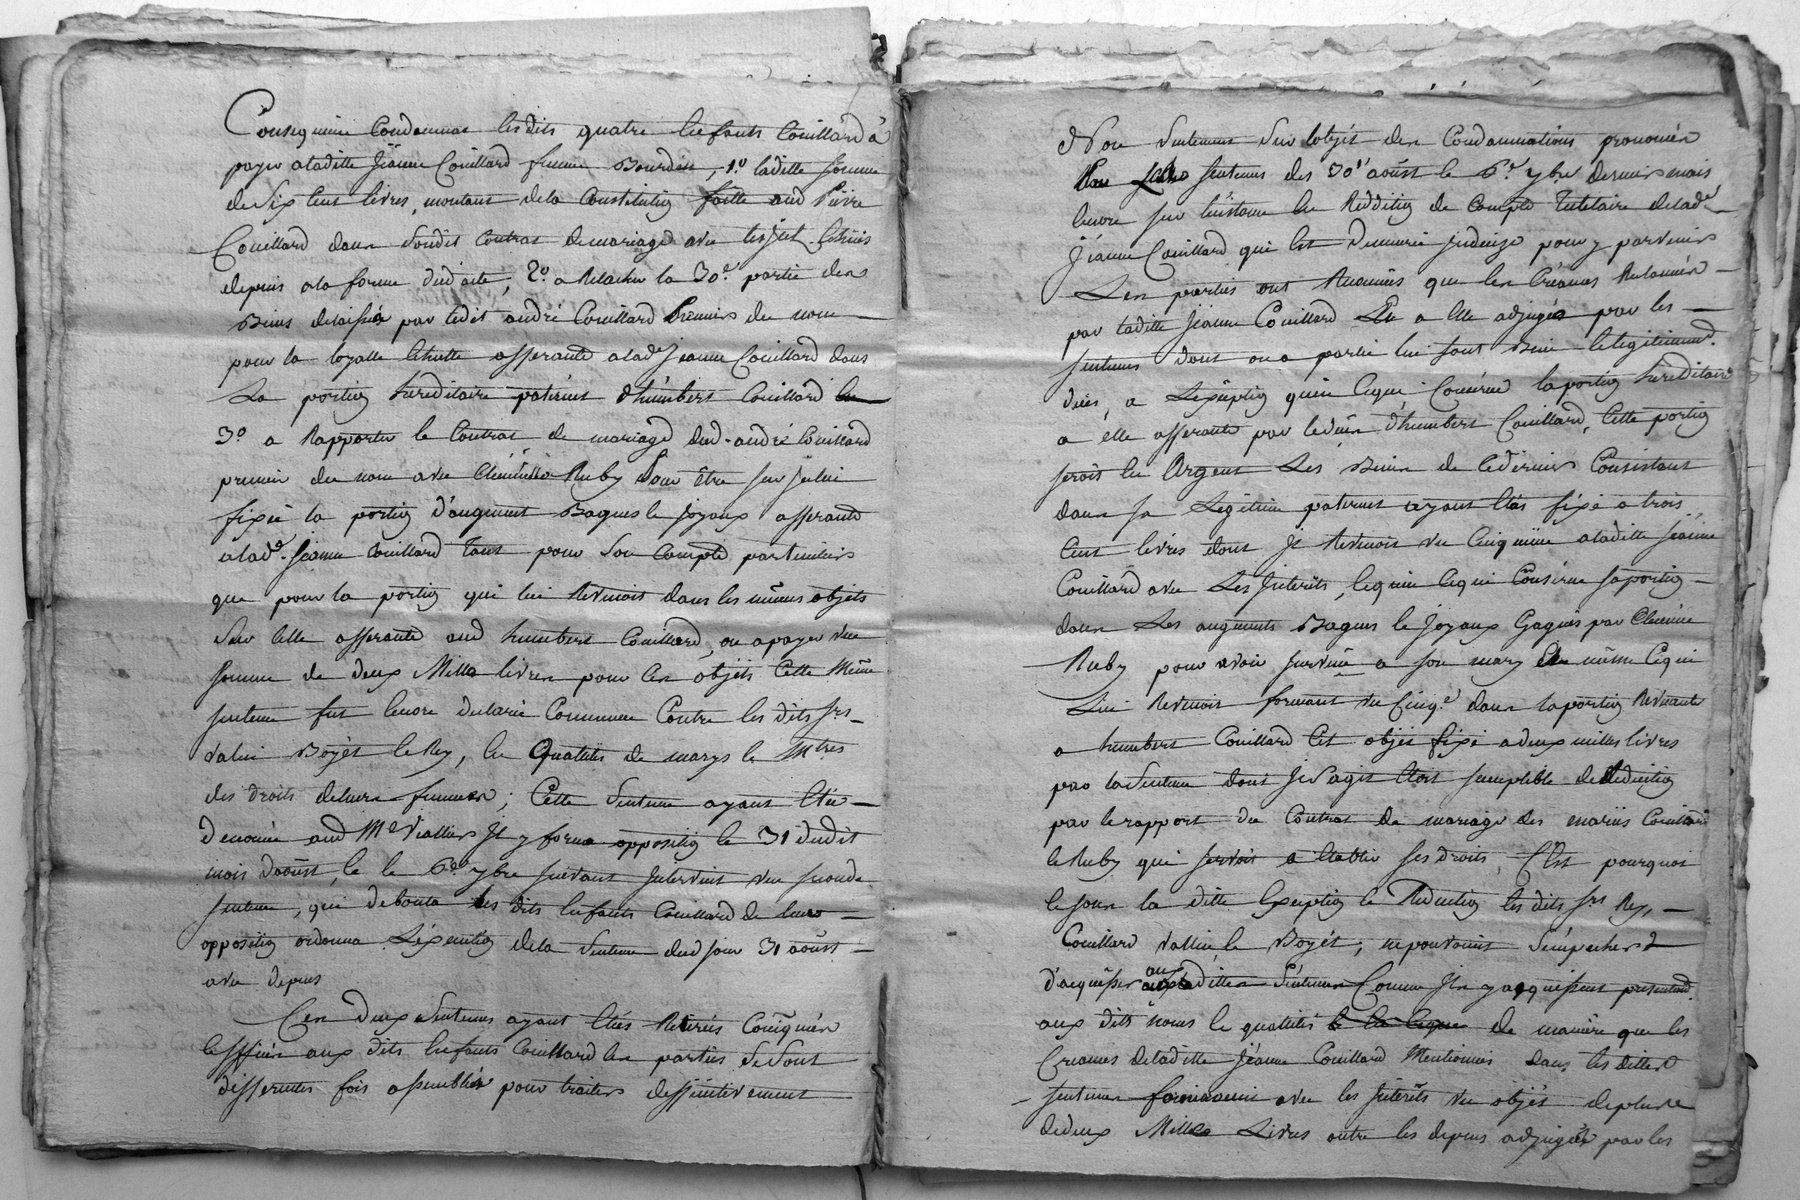 Consequence Condamna lesdits quatre Enfants Couillard à
payer aladitte Jeanne Couillard femme Bourdin, 1.º laditte somme
de Six Cent livres, montant dela Constitution faitte aud Pierre
Couillard dans Sondit Contrat de mariage avec interest Echus
depuis ala forme dud acte, 2.º a Relacher la 30.e partie des
Biens delaissés par ledit andré Couillard Premier du nom
pour la loyalle Echutte afferante alad.e Jeanne Couillard dans
La portion hereditaire paternel d'humbert Couillard
3.º a Rapporter le Contrat de mariage dud. andré Couillard
premier du nom avec Clemence Ruby Pour être sur jcelui
fixée la portion d'augment Bagues & joyaux afferante
alad.e Jeanne Couillard Tant pour Son Compte particulier
que pour la portion qui lui Revenoit dans les mêmes objets
Sur Celle afferante aud humbert Couillard, ou a payer une
somme de deux Mille livres pour Ces objets Cette Même
sentence fut Encore declarée Commune Contre les dits srs
valin Boyèt & Rey, En Qualités de marys & Mtres
des droits deleurs femmes; Cette Sentence ayant Eté
denoncée aud Me viallier Jl y forma opposition le 31 dudit
mois d'aoüst, & le 6e 7bre suivant Jntervint une seconde
sentence, qui debouta les dits Enfants Couillard de leur
opposition ordonna L'éxecution dela Sentence dud jour 31 aoüst
avec depens
Ces deux Sentences ayant Etés
aux dits Enfants Couillard les parties Se Sont
differentes fois assemblées pour traiter deffinitivement
Non Seulement Sur lobjet des Condamnations prononcées
Par sentences des 30 aoüst & 6e 7bre derniers mais
Encore sur L'instance En Reddition de Compte Tutelaire delad.e
Jeanne Couillard qui Est Demeurée jndecise pour y parvenir
Les parties ont que les Créances
par laditte Jeanne Couillard Et a Elle adjugées par les
sentences dont on a parlé lui sont Bien & legitimem.t
dües, a L'éxeption qu'en Ceque Concerne la portion hereditaire
a elle afferante par humbert Couillard, Cette portion
seroit En Argent Les Biens de Cedernier Consistant
dans sa Legitime paternel ayant Etés fixé a trois
Cent livres dont Jl Revenoit un Cinquième aladitte Jeanne
Couillard avec Les Jnterêts, & qu'en Cequi Concerne sa portion
dans Les augments Bagues & Joyaux Gagnés par Clemence
Ruby pour avoir survécu a son mary Et même Cequi
Lui Revenoit formant un Cinq.e dans la portion Revenante
a humbert Couillard Cet objet fixé adeux milles livres
par la Sentence dont Jl S'agit Etoit suseptible de Reduction
par le rapport du Contrat de mariage des mariés Couillard
& Ruby qui servoit a Etablir ses droits, C'Est pourquoi
& sous la ditte Exeption & Reduction les dits srs Rey,
Couillard vallin & Boyèt, ne pouvoient S'émpecher
d'acquiesser aux dittes Sentences Comme Jls y acquiessent presentem.t
aux dits noms & qualités de manière que les
Créances deladitte Jeanne Couillard Mentionnées dans les dittes
sentences avec les Jnterêts un objet deplus
dedeux Milles Livres outre les depens adjugés par les